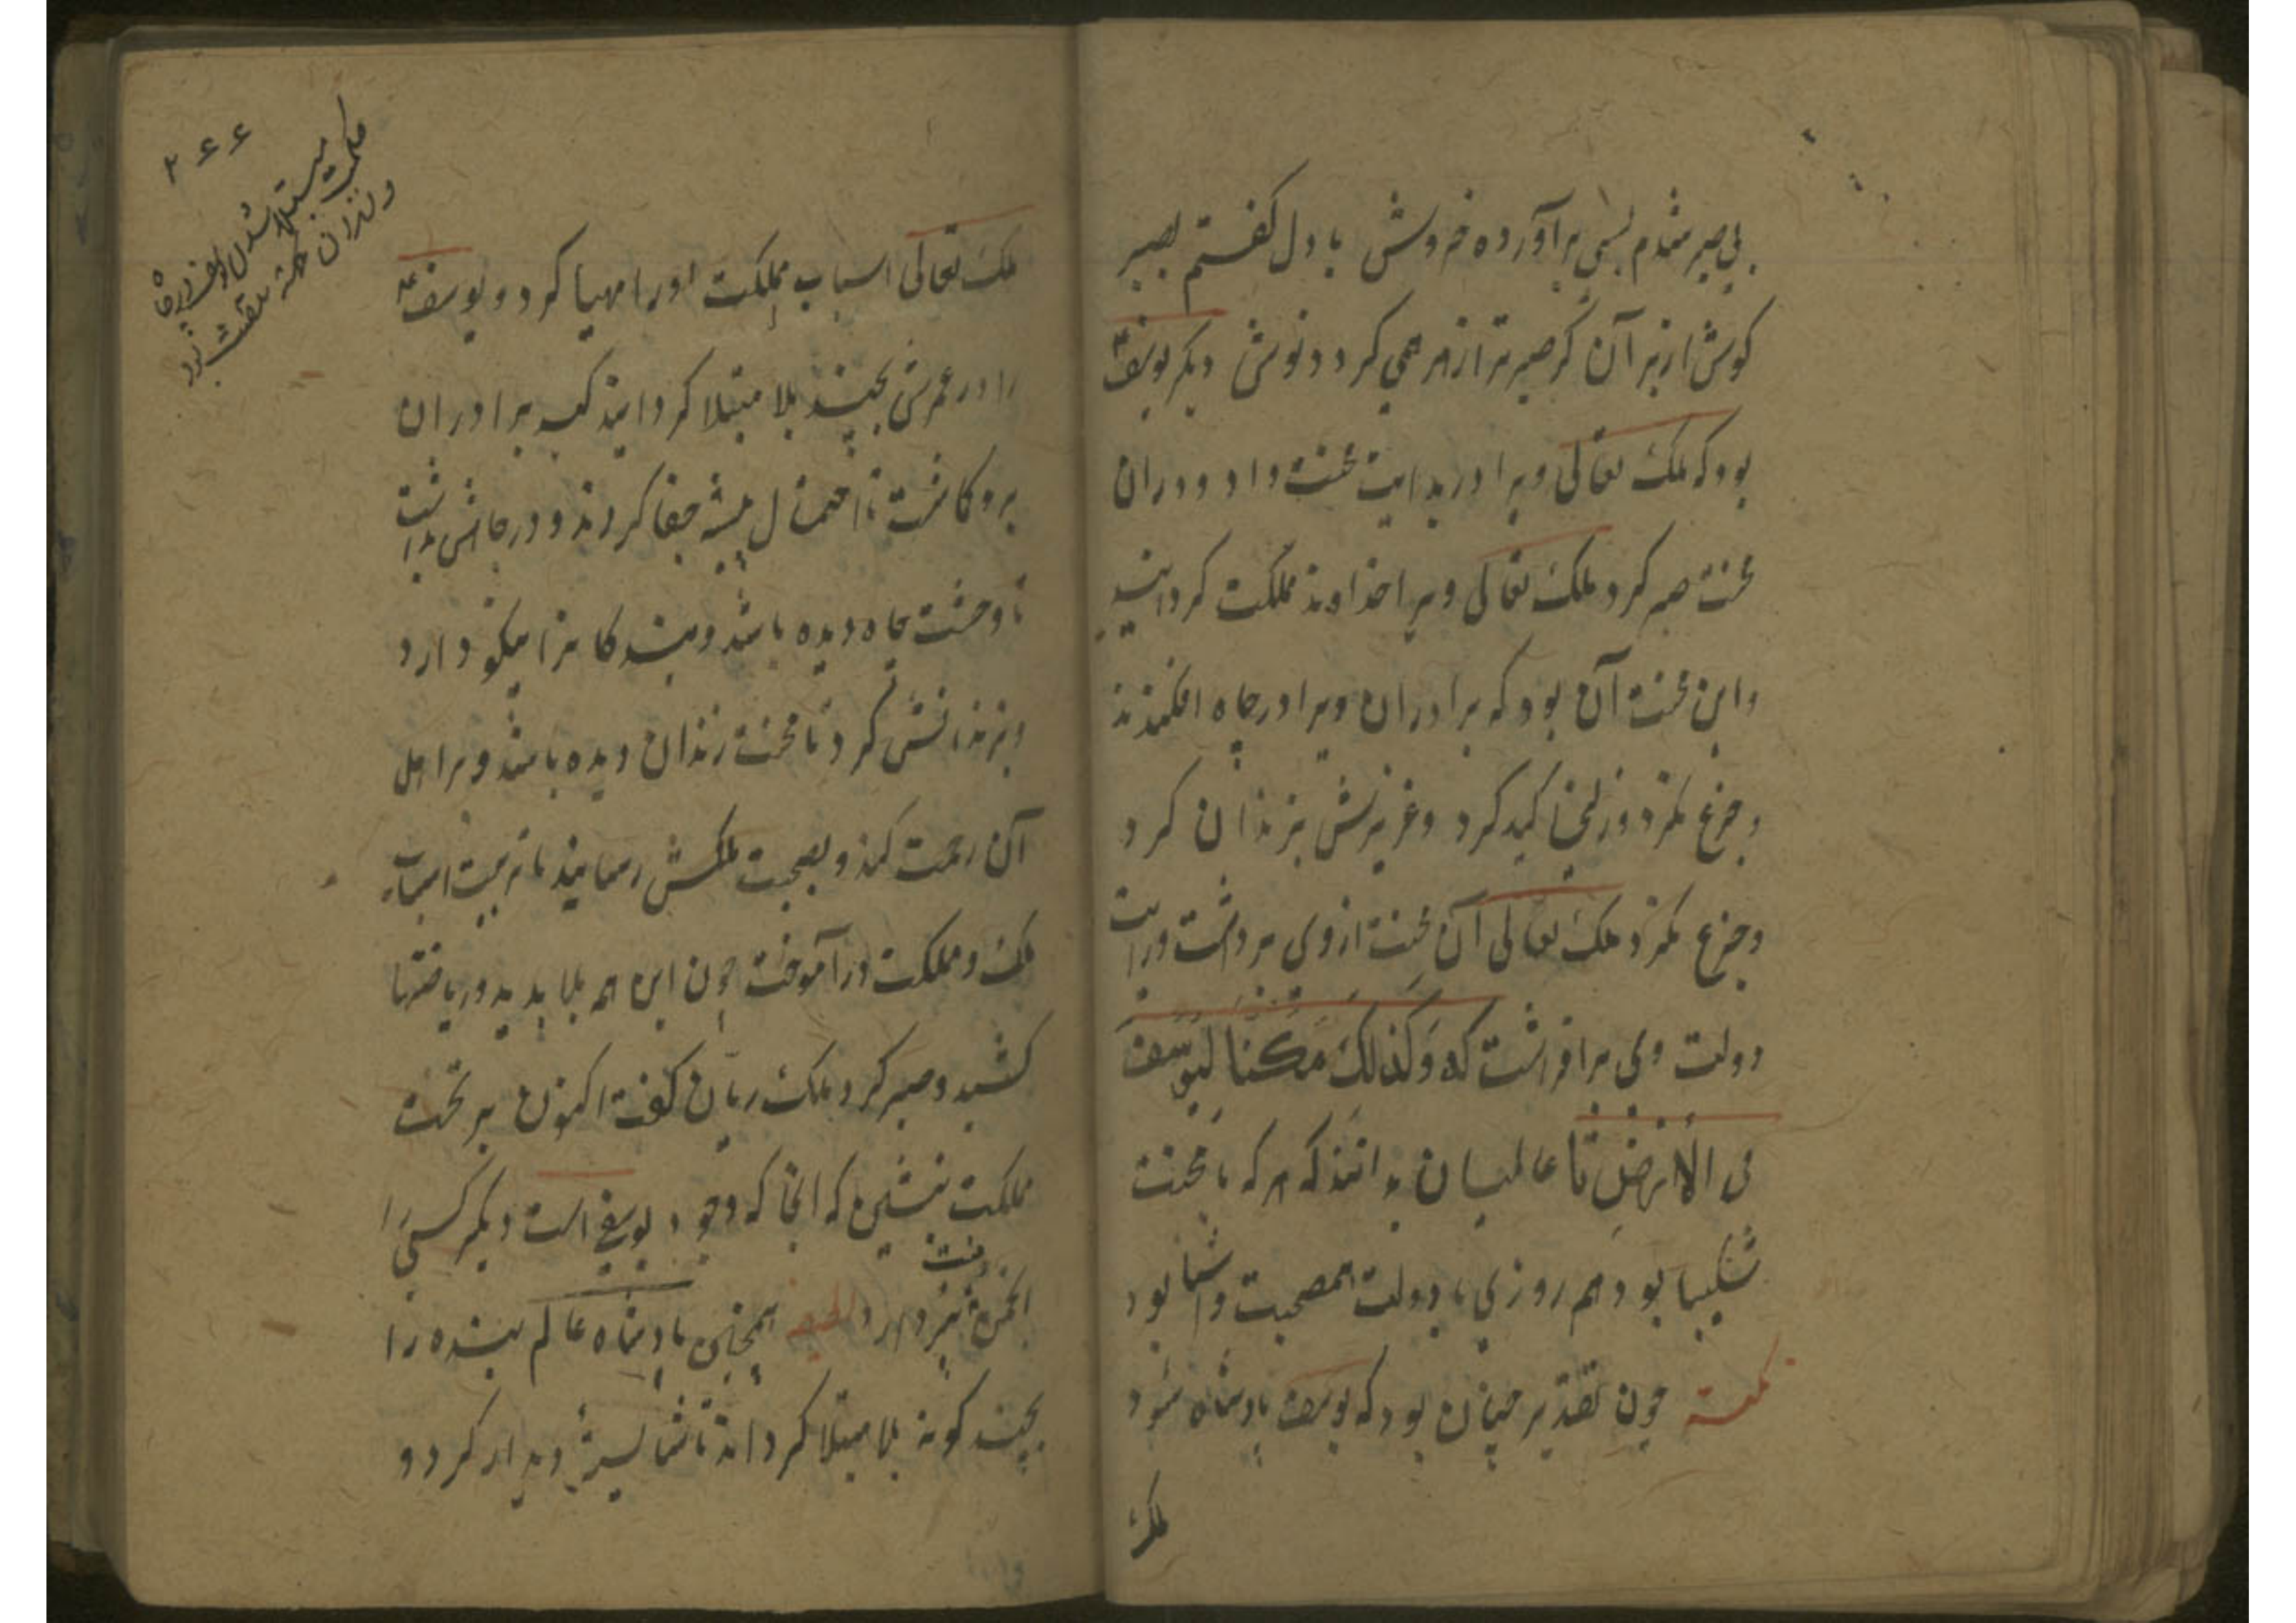 بی صبر شدم بسی برآورده خروش با دل کفتم بصبر
کوش از بر آن کر صبر تر از زهر همی کردد نوش دیکر یوسف
بود که ملک تعالی ویرا در بدایت محنت داد و در ان
محنت صبر کرد ملک تعالی ویرا خداوند مملکت کردانید
و این محنت آن بود که برادران ویرا در چاه افکندند
و جزع نکرد و زلیخا کید کرد و عزیزش بزندان کرد
و جزع نکرد ملک تعالی آن محنت از وی برداشت و رایت
دولت وی برافراشت که وَکَذلِکَ مَکَّنَّا لِیُوسُفَ
فی الاَرضِ تا عالمیان بدانند که هر که با محنت
شکیبا بود هم روزی با دولت هم صحبت و آشنا بود
نکته چون تقدیر چنان بود که یوسف پادشاه شود
ملک
ملک تعالی اسباب مملکت اورا مهیا کرد و یوسف
را در عمرش بچند بلا مبتلا کردانید که برادران
برو کاشت تا احتمال پیشه جفا کردند و در چاهش بداشت
تا وحشت چاه دیده باشد و بندکانرا نیکو دارد
و بزندانش کرد تا محنت زندان دیده باشد و بر اهل
آن رحمت کند و بصحبت ملکش رسانید تا تربیت اسباب
ملک و مملکت در آموخت چون این همه بلا بدید و ریاضتها
کشید و صبر کرد ملک ریان کفت اکنون بر تخت
مملکت بنشین که انجا که وجود یوسفی است دیکر کسی را
همچنین پادشاه عالم بنده را
بچند کونه بلا مبتلا کرداند تا شایسته دیدار کردد و
۲۶۶
حکمت مبتلا شدن یوسف در چاه